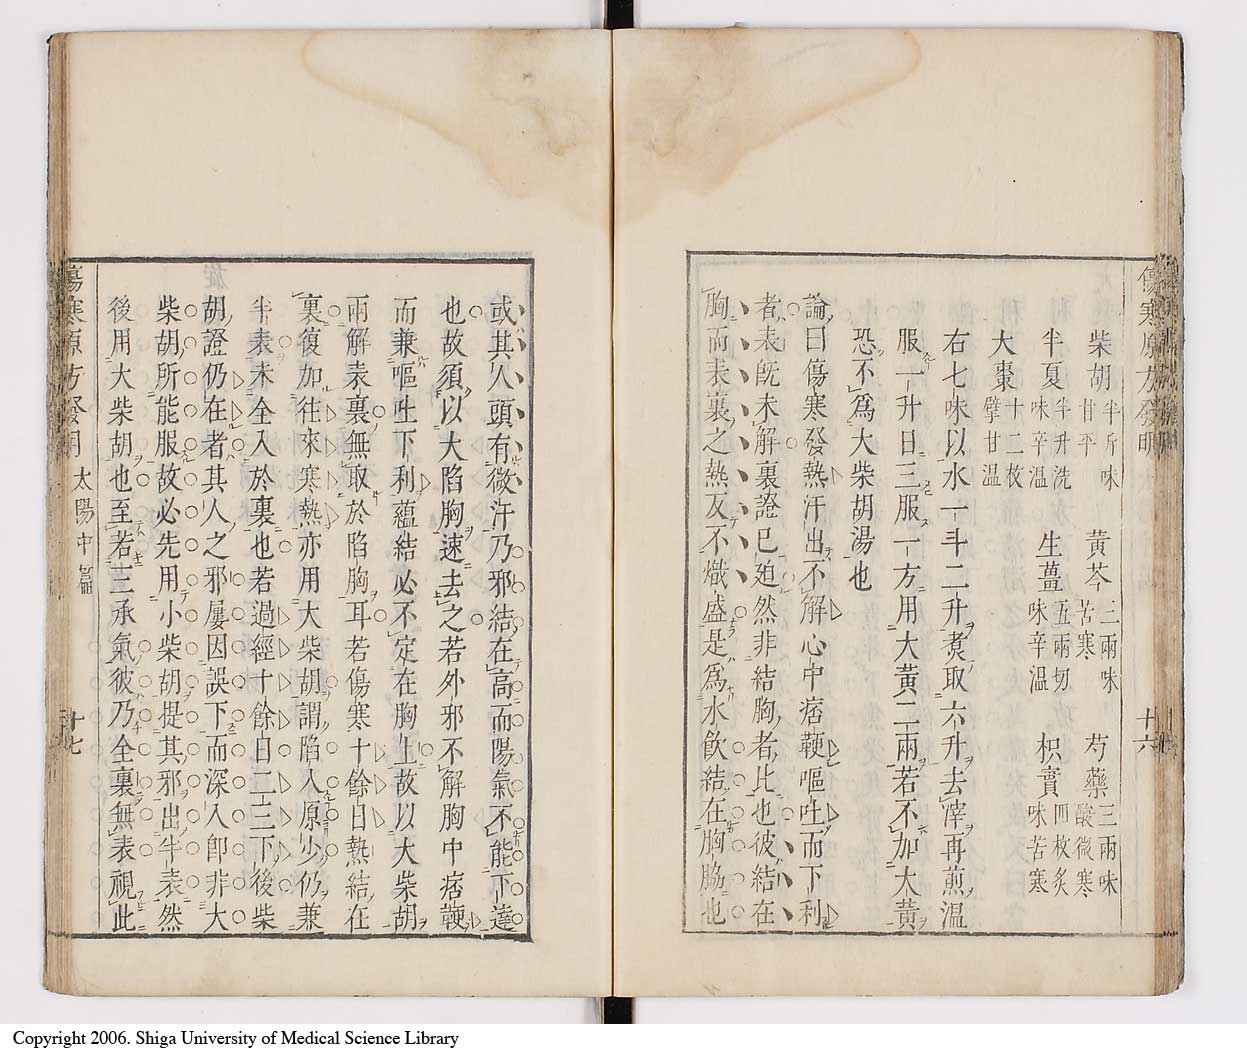 傷寒原方發明
十六
柴胡 半斤味甘平 黃芩 三兩味苦寒 芍藥 三兩味酸微寒
半夏 半升洗味辛溫 生薑 五兩切味辛溫 枳實 四枚炙味苦寒
大棗 十二枚擘甘溫
右七味以水一斗二升煑取六升去滓再煎溫
服一升日三服一方用大黃二兩若不加大黃
恐不爲大柴胡湯也
論曰傷寒發熱汗出不解心中痞鞕嘔吐而下利
者表旣未解裏證已廹然非結胸者比也彼結在
胸而表裏之熱反不熾盛是爲水飮結在胸脇也
或其人頭有微汗乃邪結在高而陽氣不能下達
也故須以大陷胸速去之若外邪不解胸中痞鞕
而兼嘔吐下利蘊結必不定在胸上故以大柴胡
兩解表裏無取於陷胸耳若傷寒十餘日熱結在
裏復加往來寒熱亦用大柴胡謂陷入原少仍兼
半表未全入於裏也若過經十餘日二三下後柴
胡證仍在者其人之邪屢因誤下而深入卽非大
柴胡所能服故必先用小柴胡提其邪出半表然
後用大柴胡也至若三承氣彼乃全裏無表視此
傷寒原方發明 太陽中篇
十七
Copyright 2006. Shiga University of Medical Science Library